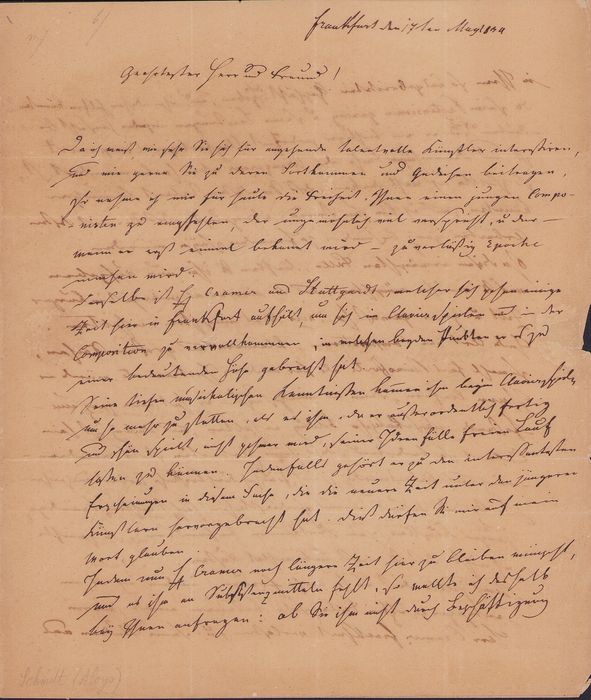 Frankfurt den 17ten May 1834
Geehrtester Herr und Freund!
Da ich weiß, wie sehr Sie sich für angehende talentvolle Künstler interessiren,
und wie gerne Sie zu deren Fortkommen und Gedeihen beitragen,
so nehme ich mir für heute die Freiheit, Ihnen einen jungen Compo-
nisten zu empfehlen, der ungewöhnlich viel verspricht, u der –
wenn er erst einmal bekannt wird – zuverlässig Epoche
machen wird.
Derselbe ist H Cramer aus Stuttgardt, welcher sich schon einige
Zeit hier in Frankfurt aufhält, um sich im Clavierspielen u in der
Composition zu vervollkommnen, in welchen beyden Punkten er es zu
einer bedeutenden Höhe gebracht hat.
Seine tiefen musikalischen Kenntnisse kommen ihm beym Clavierspielen
um so mehr zu statten, als es ihm, da er außerordentlich fertig
und schön spielt, nicht schwer wird, seiner Ideenfülle freien Lauf
lassen zu können. Jedenfalls gehört er zu den interessantesten
Erscheinungen in diesem Fache, die die neuere Zeit unter den jüngeren
Künstlern hervorgebracht hat. Dieß dürfen Sie mir auf mein
Wort glauben.
Indem nun H Cramer noch längere Zeit hier zu bleiben wünscht,
und es ihm an Subsistenzmitteln fehlt, so wollte ich deshalb
bey Ihnen anfragen: ob Sie ihm nicht durch Beschäftigung
Schmitt (Aloys)